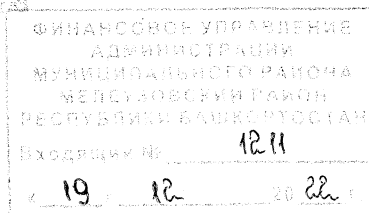 ФИНАНСОВОЕ УПРАВЛЕНИЕ
АДМИНИСТРАЦИИ
МУНИЦИПАЛЬНОГО РАЙОНА
МЕЛЕУЗОВСКИЙ РАЙОН
РЕСПУБЛИКИ БАШКОРТОСТАН
Входящий № 1211
« 19 » 12 20 22 г.